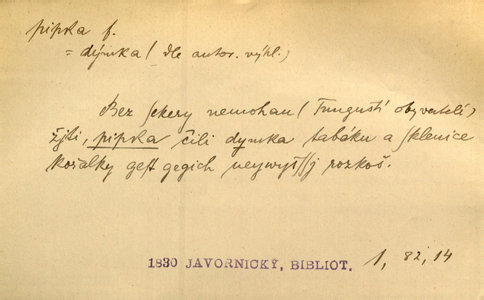 pipska f.
= dýmka ( dle autor. výkl.)
Bez sekery nemohau ( Tungustí obyvatelé)
žjti, pipska čili dymka tabáku a sklenice
kořalky gest gegich neywyšssj rozkoš.
1830 JAVORNICKÝ, BIBLIOT. 1, 82, 14